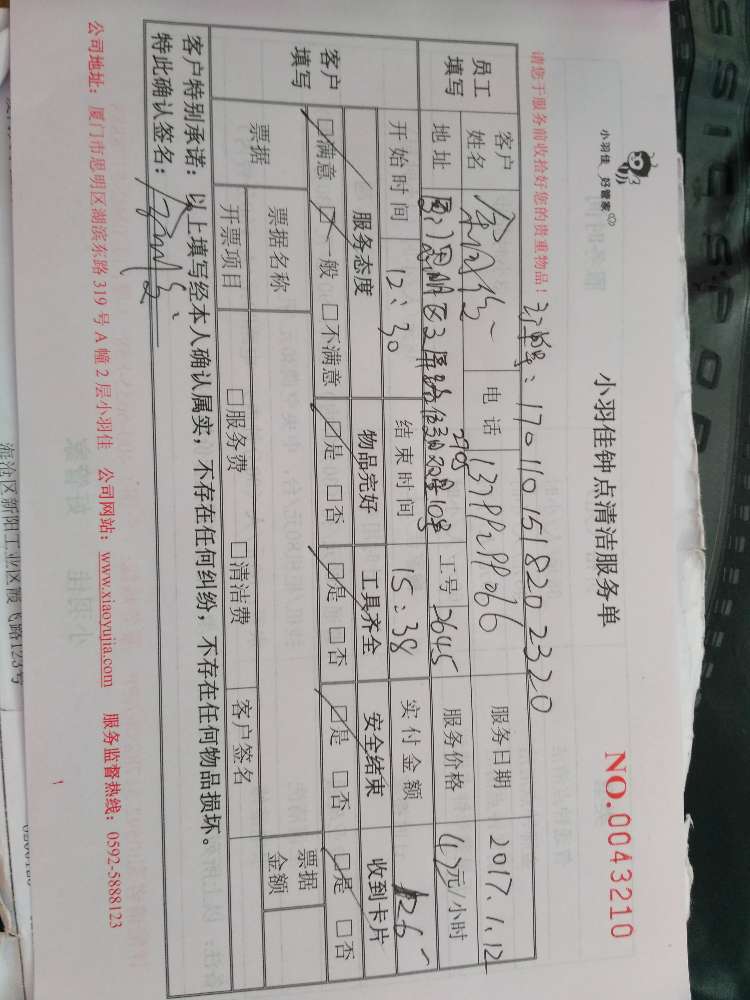 小羽佳 好管家
小羽佳钟点清洁服务单
NO.0043210
请您于服务前收拾好您的贵重物品！
订单号：17011015182023 20
员工填写
客户姓名
电话
服务日期 2017.1.12
地址
2905
工号 2645
服务价格 47元/小时
开始时间 12:30 结束时间 15:38 实付金额 126
客户填写
服务态度 物品完好 工具齐全 安全结束 收到卡片
☑满意 □一般 □不满意 ☑是 □否 ☑是 □否 ☑是 □否 ☑是 □否
票据 票据名称 票据金额
开票项目 □服务费 □清洁费 客户签名
客户特别承诺：以上填写经本人确认属实，不存在任何纠纷，不存在任何物品损坏。
特此确认签名：
公司地址：厦门市思明区湖滨东路 319 号 A 幢 2 层小羽佳 公司网站：www.xiaoyujia.com 服务监督热线：0592-5888123
1
海沧区新阳工业区霞飞路123号